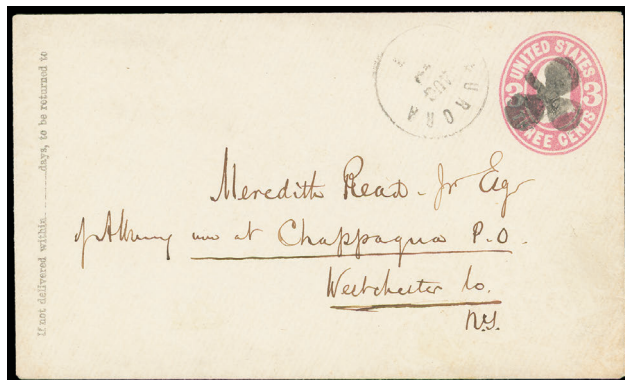 If not delivered within ........ days, to be returned to
AURORA
AUG
UNITED STATES
3 3
THREE CENTS
Meredith Read Jr Esq
of Albany now at Chappaqua P.O.
Westchester Co.
N.Y.